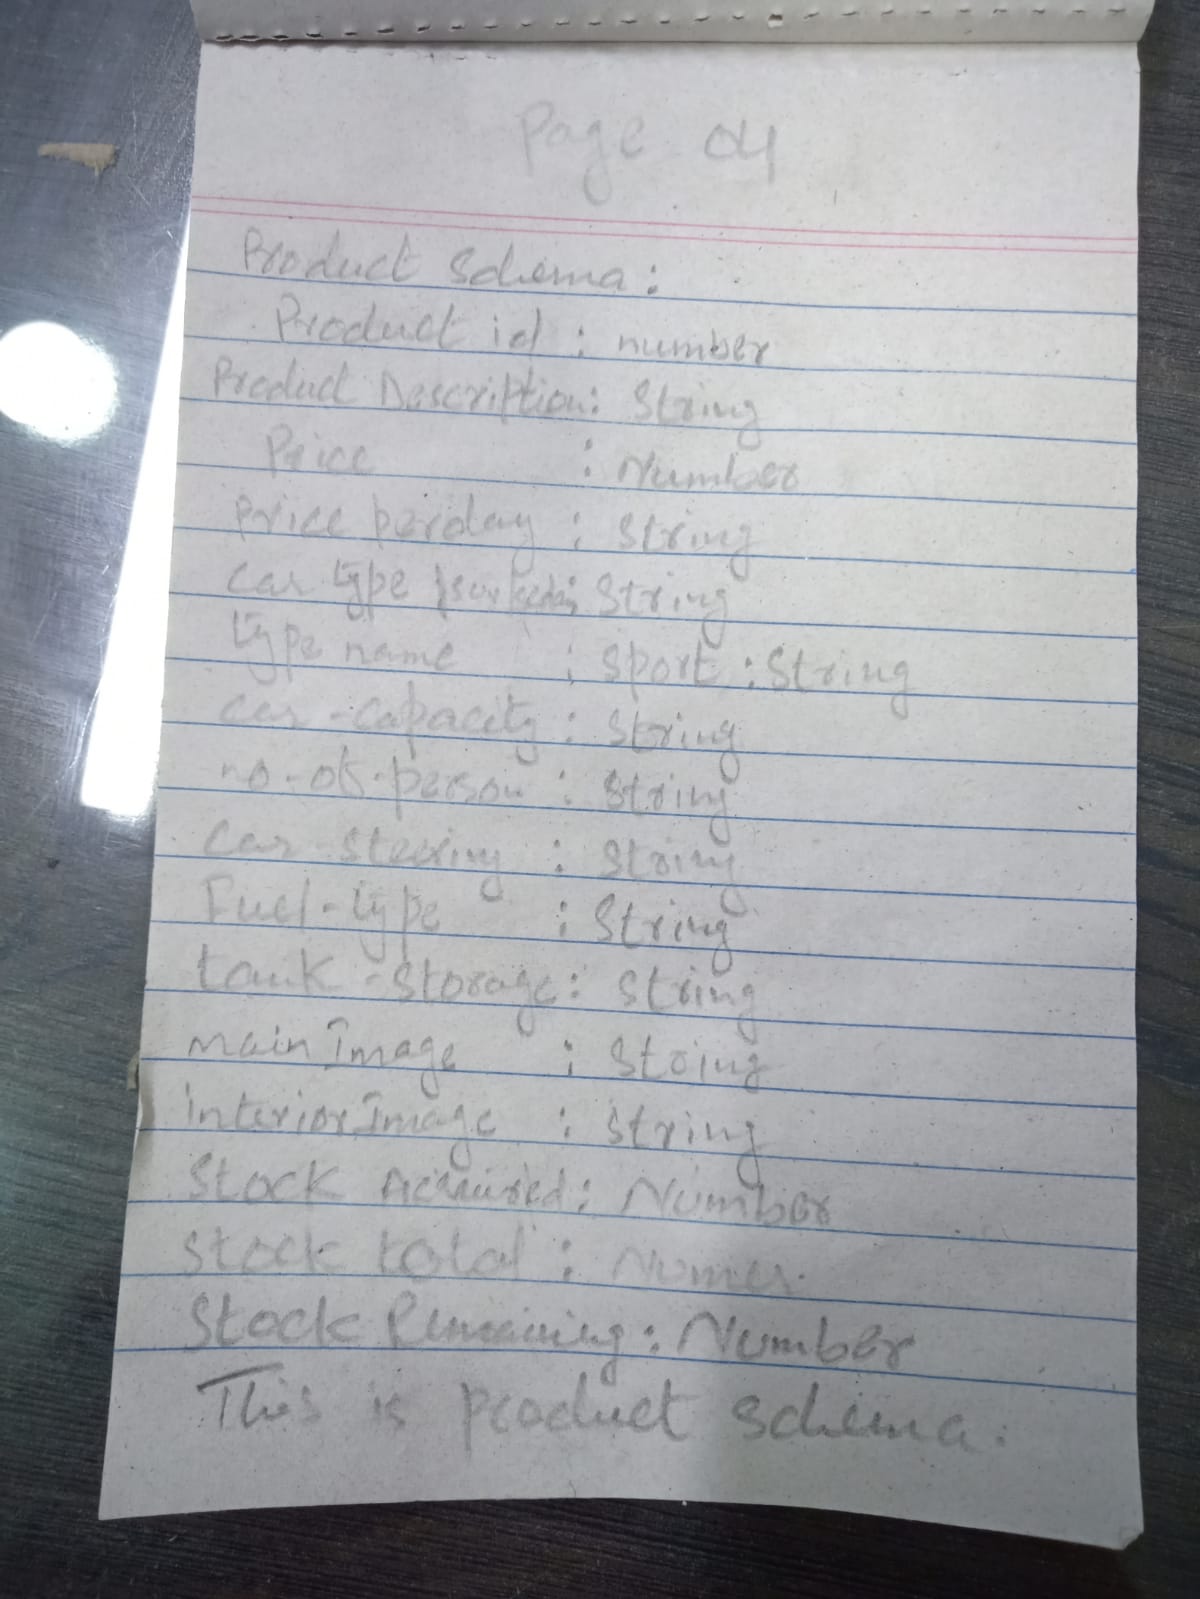 Page 04
Product Schema :
Product id : number
Product Description : String
Price : Number
price perday : string
car type : string
type name : sport : string
car-capacity : string
no-of-person : string
car steering : string
Fuel-type : String
tank-storage : string
main Image : string
interior Image : string
Stock Acquired : Number
stock total :
Stock Remaining : Number
This is product schema.